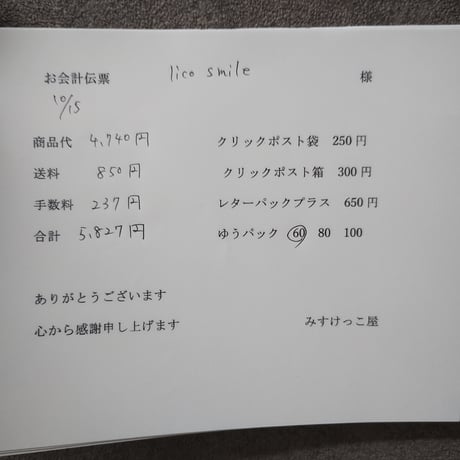 お会計伝票 lico smile 様
10/15
商品代 4,740円 クリックポスト袋 250円
送料 850円 クリックポスト箱 300円
手数料 237円 レターパックプラス 650円
合計 5,827円 ゆうパック 60 80 100
ありがとうございます
心から感謝申し上げます みすけっこ屋